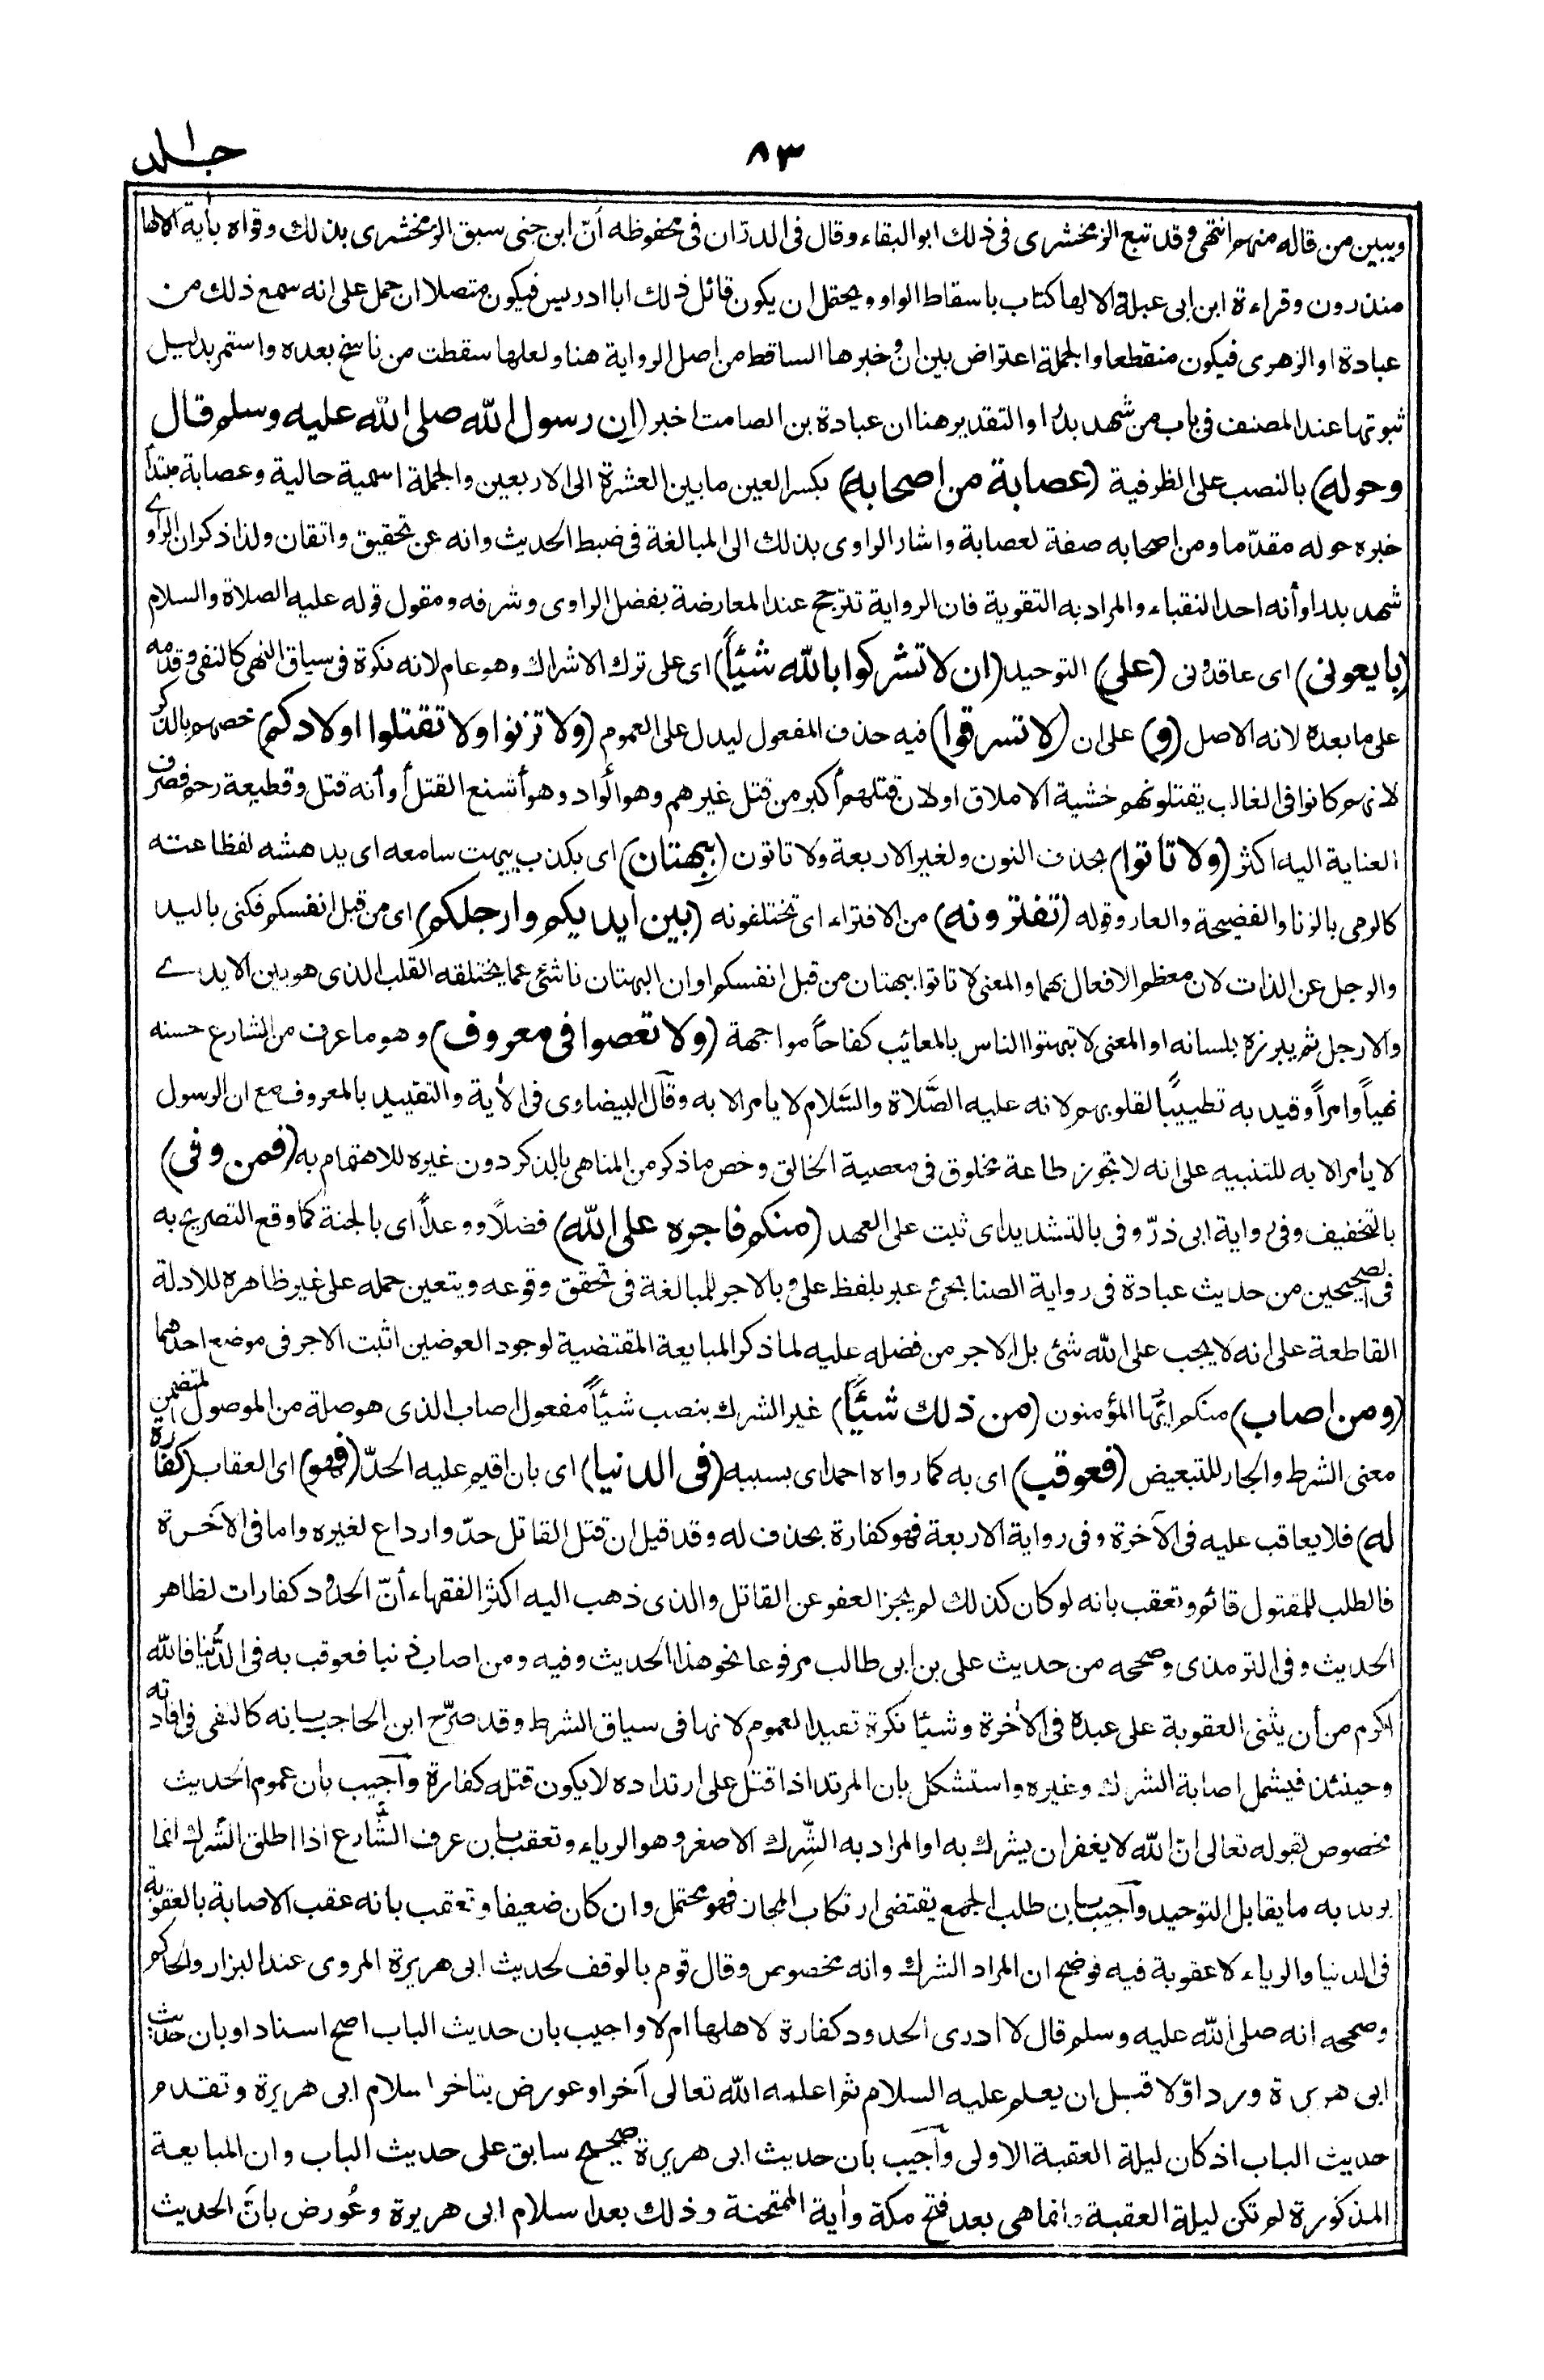 ٨٣
جلد ١
ويبين من قاله منهم انتهى وقد تبع الزمخشرى فى ذلك ابو البقاء وقال فى الدرّان فى محفوظه أنّ ابن جنى سبق الزمخشرى بذلك وقواه بأية الالها
منذرون وقراءة ابن ابى عبلة الا لها كتاب باسقاط الواو ويحتمل ان يكون قائل ذلك ابا ادريس فيكون متصلا ان حمل على انه سمع ذلك من
عبادة او الزهرى فيكون منقطعا والجملة اعتراض بين انّ وخبرها الساقط من اصل الرواية هنا ولعلها سقطت من ناسخ بعده واستمر بدليل
ثبوتها عند المصنف فى باب من شهد بدرا والتقدير هنا ان عبادة بن الصامت اخبر (ان رسول الله صلى الله عليه وسلم قال
وحوله) بالنصب على الظرفية (عصابة من اصحابه) بكسر العين ما بين العشرة الى الاربعين والجملة اسمية حالية وعصابة مبتدأ
خبره حوله مقدّما ومن اصحابه صفة لعصابة واشار الراوى بذلك الى المبالغة فى ضبط الحديث وانه عن تحقيق واتقان ولذا ذكر ان الراوے
شهد بدرا وأنه احد النقباء والمراد به التقوية فان الرواية تترجح عند المعارضة بفضل الراوى وشرفه ومقول قوله عليه الصلاة والسلام
(بايعونى) اى عاقدونى (على) التوحيد (ان لا تشركوا بالله شيئاً) اى على ترك الاشراك وهو عام لانه نكرة فى سياق النهى كالنفى وقدمه
على ما بعده لانه الاصل (و) على ان (لا تسرقوا) فيه حذف المفعول ليدل على العموم (ولا تزنوا ولا تقتلوا اولادكم) خصهم بالذكر
لانهم كانوا فى الغالب يقتلونهم خشية الاملاق او لان قتلهم أكبر من قتل غيرهم وهو الوأد وهو أشنع القتل أو أنه قتل وقطيعة رحم فصرف
العناية اليه اكثر (ولا تاتوا) بحذف النون ولغير الاربعة ولا تاتون (ببهتان) اى بكذب يبهت سامعه اى يدهشه لفظاعته
كالرمى بالزنا والفضيحة والعار وقوله (تفترونه) من الافتراء اى تختلقونه (بين ايديكم وارجلكم) اى من قبل انفسكم فكنى باليد
والرجل عن الذات لان معظم الافعال بهما والمعنى لا تاتوا ببهتان من قبل انفسكم او ان البهتان ناشئ عما يختلقه القلب الذى هو بين الايدے
والارجل ثم يبرزه بلسانه او المعنى لا تبهتوا الناس بالمعائب كفاحاً مواجهة (ولا تعصوا فى معروف) وهو ما عرف من الشارع حسنه
نهياً وامراً وقيد به تطييبًا لقلوبهم لانه عليه الصَّلاة والسَّلام لا يامر الا به وقال البيضاوى فى الأية والتقييد بالمعروف مع ان الرسول
لا يأمر الا به للتنبيه على انه لا تجوز طاعة مخلوق فى معصية الخالق وخص ما ذكر من المناهى بالذكر دون غيره للاهتمام به (فمن وفى)
بالتخفيف وفى رواية ابى ذرّ وفى بالتشديد اى ثبت على العهد (منكم فاجره على الله) فضلاً ووعداً اى بالجنة كما وقع التصريح به
فى الصحيحين من حديث عبادة فى رواية الصنابحى عبر بلفظ على وبالاجر للمبالغة فى تحقق وقوعه ويتعين حمله على غير ظاهره للادلة
القاطعة على انه لا يجب على الله شئ بل الاجر من فضله عليه لما ذكر المبايعة المقتضية لوجود العوضين اثبت الاجر فى موضع احدهما
(ومن اصاب) منكم ايّها المؤمنون (من ذلك شيئًا) غير الشرك بنصب شيئًا مفعول اصاب الذى هو صلة من الموصول المتضمن
معنى الشرط والجار للتبعيض (فعوقب) اى به كما رواه احمد اى بسببه (فى الدنيا) اى بان اقيم عليه الحدّ (فهو) اى العقاب (كفارة
له) فلا يعاقب عليه فى الآخرة وفى رواية الاربعة فهو كفارة بحذف له وقد قيل ان قتل القاتل حدّ وارداع لغيره واما فى الآخرة
فالطلب للمقتول قائم وتعقب بانه لو كان كذلك لم يجز العفو عن القاتل والذى ذهب اليه اكثر الفقهاء أنّ الحدود كفارات لظاهر
الحديث وفى الترمذى وصححه من حديث على بن ابى طالب مرفوعا نحو هذا الحديث وفيه ومن اصاب ذنبا فعوقب به فى الدُّنيا فالله
اكرم من أن يثنى العقوبة على عبده فى الأخرة وشيئا نكرة تفيد العموم لانها فى سياق الشرط وقد صرّح ابن الحاجب بانه كالنفى فى افادته
وحينئذ فيشمل اصابة الشرك وغيره واستشكل بان المرتد اذا قتل على ارتداده لا يكون قتله كفارة وأجيب بان عموم الحديث
مخصوص لقوله تعالى انّ الله لا يغفر ان يشرك به او المراد به الشِّرك الاصغر وهو الرياء وتعقب بان عرف الشَّارع اذا اطلق الشرك انما
يريد به ما يقابل التوحيد وأجيب بان طلب الجمع يقتضى ارتكاب المجاز فهو محتمل وان كان ضعيفا وتعقب بانه عقب الاصابة بالعقوبة
فى الدنيا والرياء لا عقوبة فيه فوضح ان المراد الشرك وانه مخصوص وقال قوم بالوقف لحديث ابى هريرة المروى عند البزار والحاكم
وصححه انه صلى الله عليه وسلم قال لا ادرى الحدود كفارة لاهلها ام لا واجيب بان حديث الباب اصح اسنادا وبان حديث
ابى هريرة ورد اوّلا قبل ان يعلم عليه السلام ثم اعلمه الله تعالى آخرا وعورض بتاخر اسلام ابى هريرة وتقدم
حديث الباب اذ كان ليلة العقبة الاولى وأجيب بأن حديث ابى هريرة صحيح سابق على حديث الباب وان المبايعة
المذكورة لم تكن ليلة العقبة وانما هى بعد فتح مكة وأية الممتحنة وذلك بعد اسلام ابى هريرة وعُورض بانّ الحديث